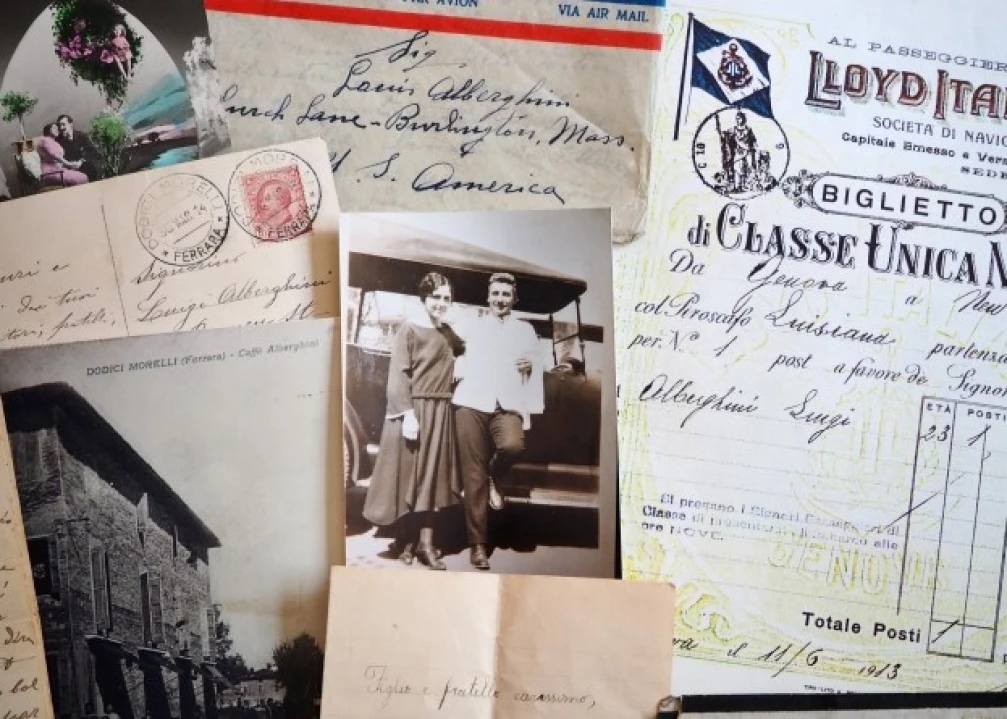 PAR AVION
VIA AIR MAIL
Sig.
Louis Alberghini
urch Lane - Burlington, Mass.
U. S. America
DODICI MORELLI
FERRARA
FERRARA
uri e
Signorino
Luigi Alberghini
DODICI MORELLI (Ferrara) - Caffè Alberghini
Figlio e fratello carissimo,
AL PASSEGGIER
LLOYD ITA
SOCIETA DI NAVIG
Capitale Emesso e Vers
SEDE
BIGLIETTO
di CLASSE UNICA N
Da Genova a New
col Piroscafo Luisiana partenza
per N.° 1 post a favore de Signor
Alberghini Luigi
ETÀ POSTI
23 1
Si pregano i Signori Passeggeri di
Classe di presentarsi all'imbarco alle
ore NOVE.
GENOVA
Totale Posti 1
va il 11/6 1913